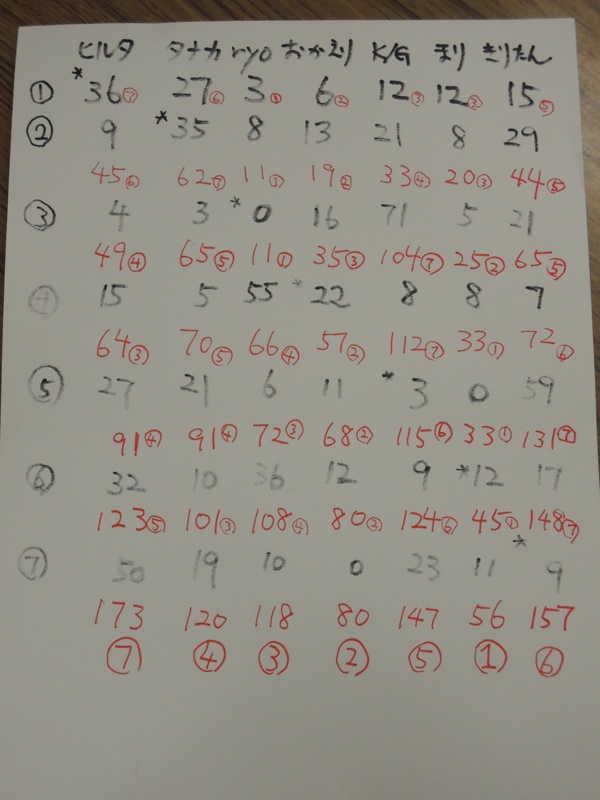 ヒルタ タナカ ryo おかえり K/G まり きりたん
① *36⑦ 27⑥ 3① 6② 12③ 12③ 15⑤
② 9 *35 8 13 21 8 29
45⑥ 62⑦ 11① 19② 33④ 20③ 44⑤
③ 4 3 *0 16 71 5 21
49④ 65⑤ 11① 35③ 104⑦ 25② 65⑤
④ 15 5 55 *22 8 8 7
64③ 70⑤ 66④ 57② 112⑦ 33① 72⑥
⑤ 27 21 6 11 *3 0 59
91④ 91④ 72③ 68② 115⑥ 33① 131⑦
⑥ 32 10 36 12 9 *12 17
123⑤ 101③ 108④ 80② 124⑥ 45① 148⑦
⑦ 50 19 10 0 23 11 *9
173 120 118 80 147 56 157
⑦ ④ ③ ② ⑤ ① ⑥